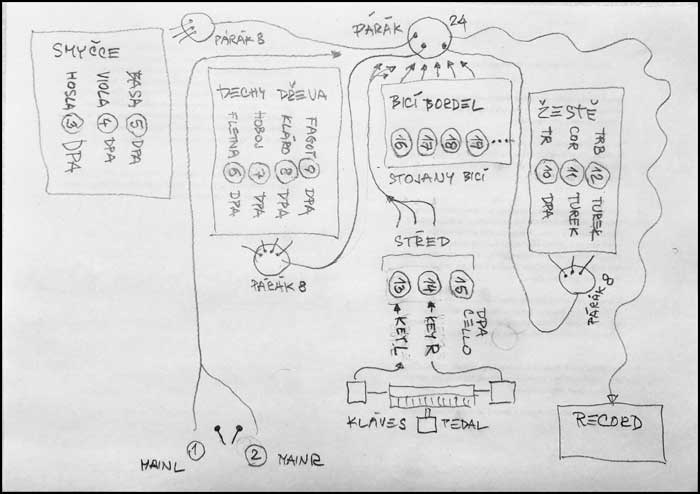 PÁRÁK 8
PÁRÁK
24
SMYČCE
HOSLA 3 DPA
VIOLA 4 DPA
BASA 5 DPA
DECHY DŘEVA
FLETNA 6 DPA
HOBOJ 7 DPA
KLÁRO 8 DPA
FAGOT 9 DPA
PÁRÁK 8
BICÍ BORDEL
16 17 18 19 ....
STOJANY BICÍ
ŽESTĚ
TR 10 DPA
COR 11 TUREK
TRB 12 TUREK
PÁRÁK 8
STŘED
13 KEY L
14 KEY R
15 DPA CELLO
KLÁVES
PEDAL
RECORD
MAINL 1
2 MAINR